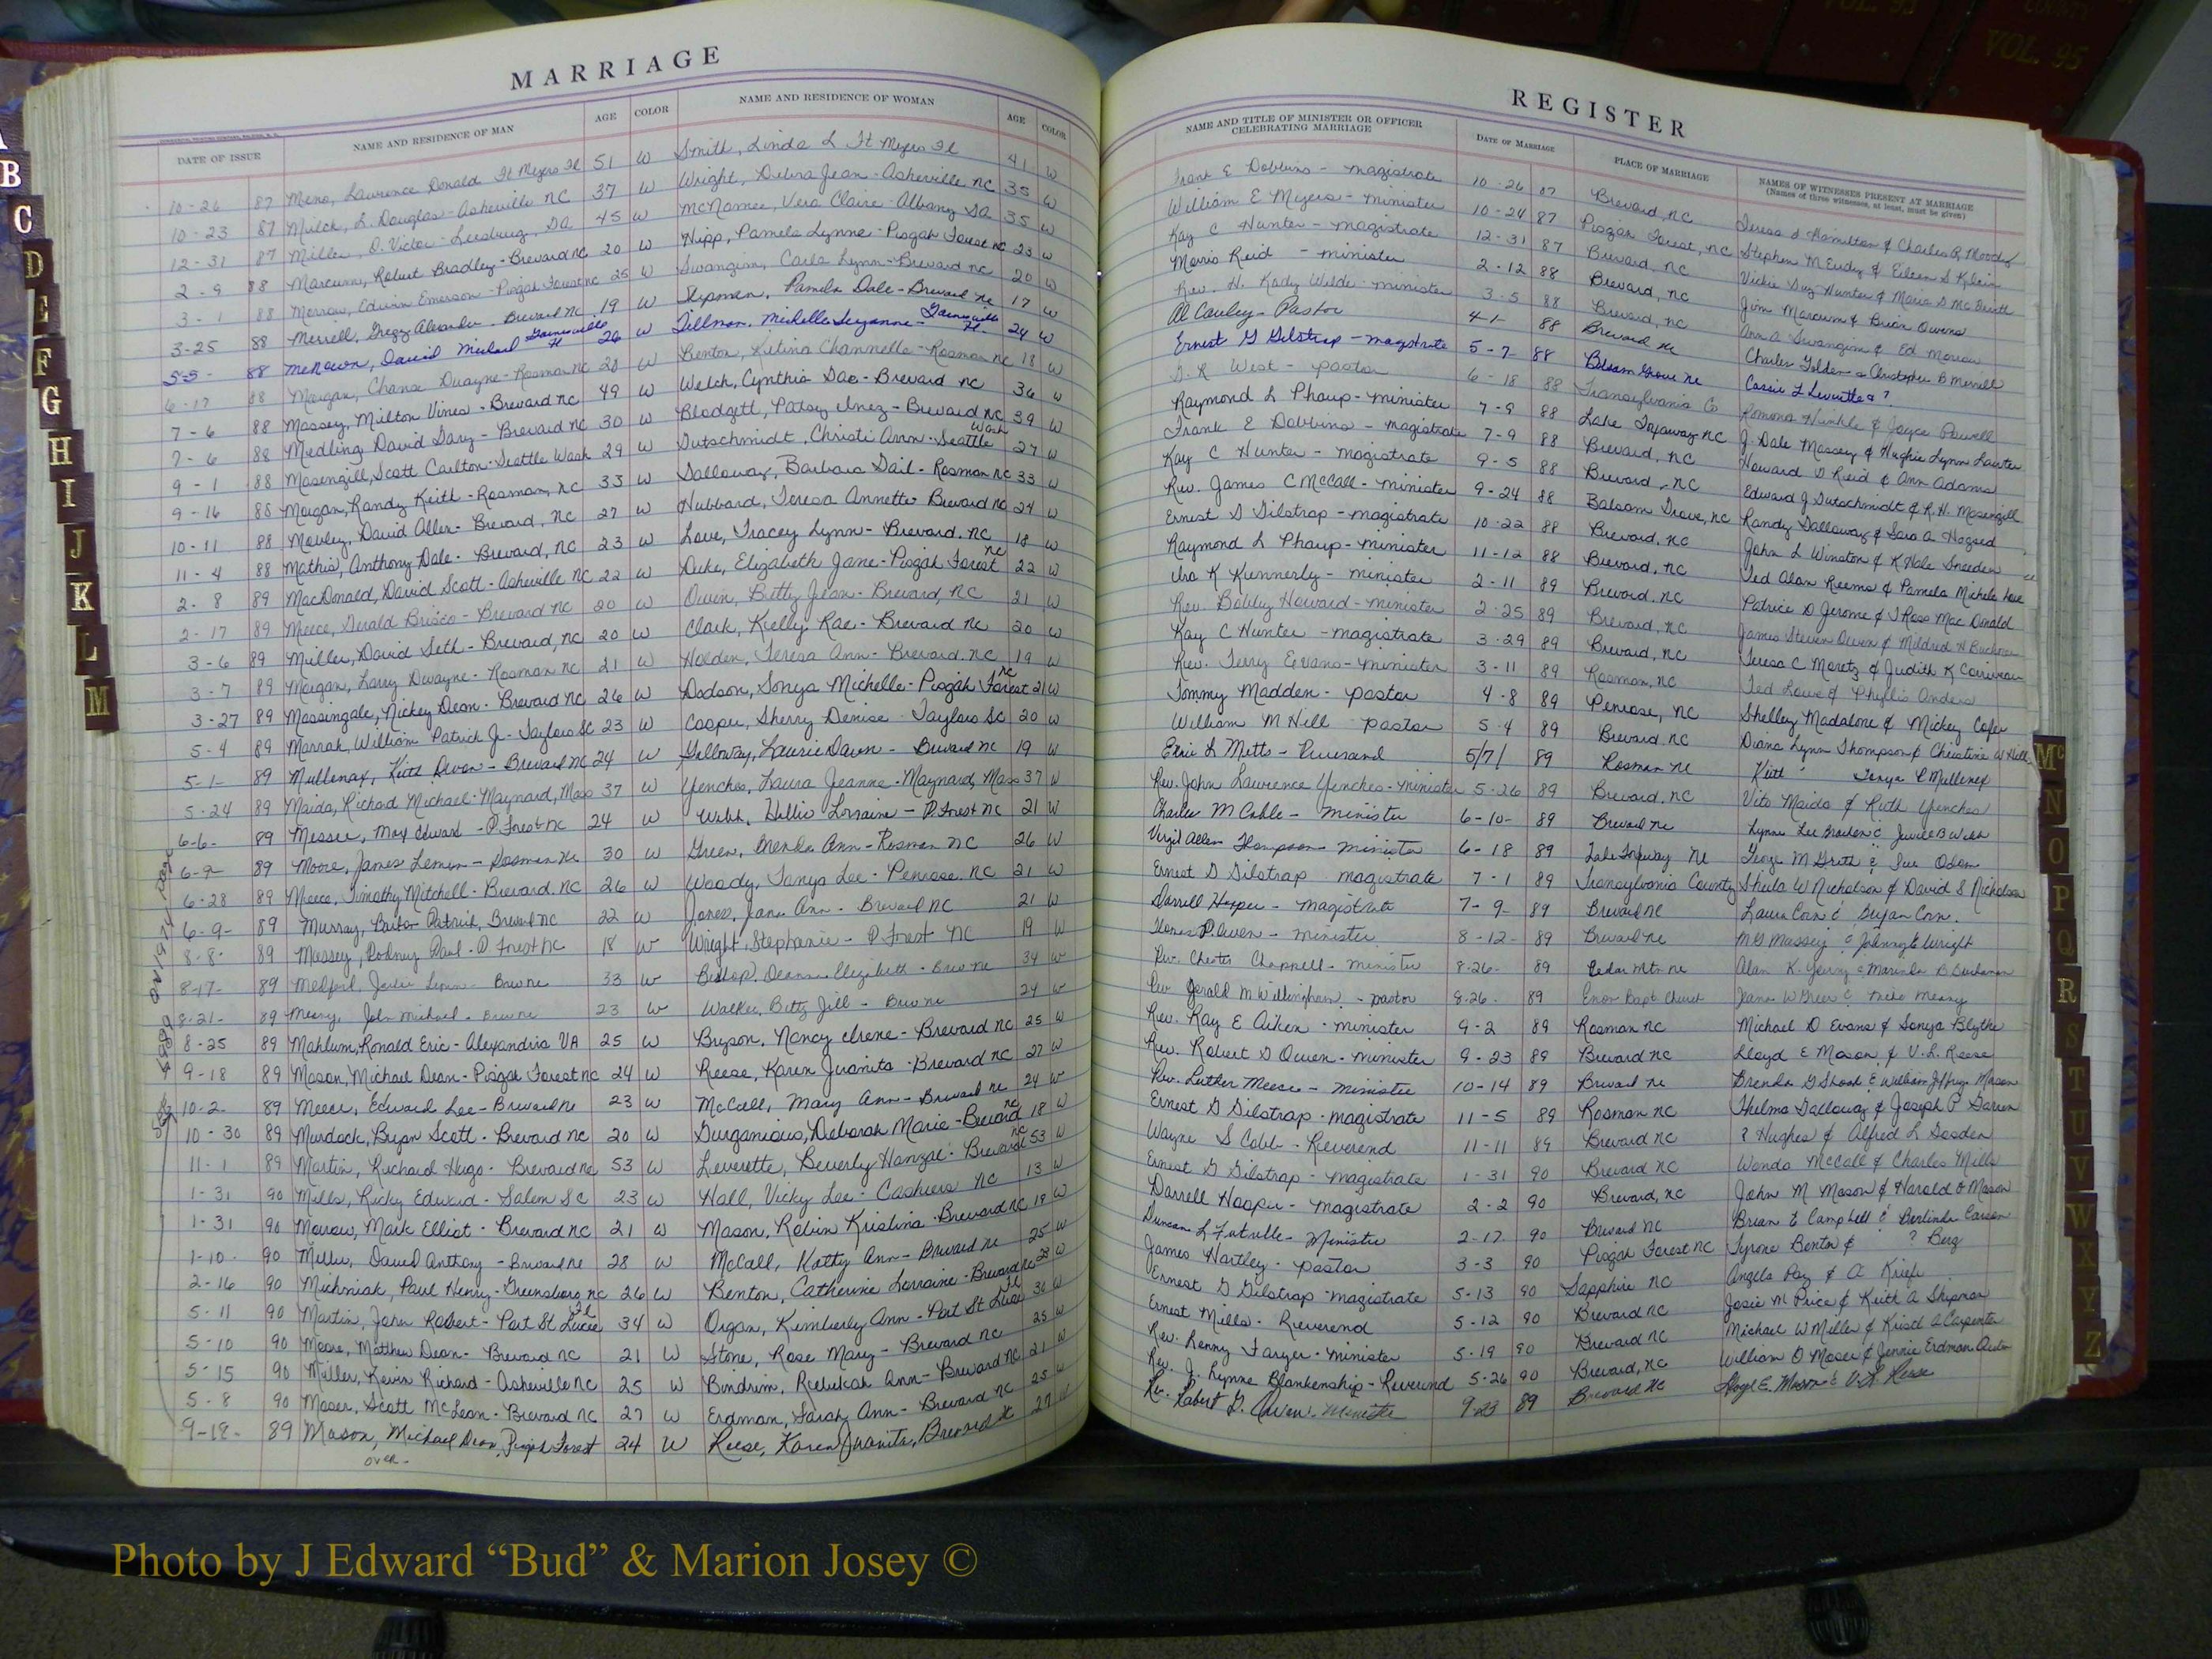 MARRIAGE
DATE OF ISSUE NAME AND RESIDENCE OF MAN AGE COLOR NAME AND RESIDENCE OF WOMAN AGE COLOR
10-26 87 Meno, Lawrence Donald Ft Myers Fl 51 W Smith, Linda L Ft Myers Fl 41 W
10-23 87 Milch, L. Douglas - Asheville NC 37 W Wright, Debra Jean - Asheville NC 35 W
12-31 87 Miller, O. Victor - Leesburg, GA 45 W McNamee, Vera Claire - Albany GA 35 W
2-9 88 Marcum, Robert Bradley - Brevard NC 20 W Hipp, Pamela Lynne - Pisgah Forest NC 23 W
3-1 88 Morrow, Edwin Emerson - Pisgah Forest NC 25 W Swangim, Carla Lynn - Brevard NC 20 W
3-25 88 Merrill, Gregg Alexander - Brevard NC 19 W Shipman, Pamela Dale - Brevard NC 17 W
5-5- 88 McNown, David Michael - Gainesville Fl 26 W Tillman, Michelle Suzanne - Gainesville Fl. 24 W
6-17 88 Morgan, Chance Duayne - Rosman NC 20 W Benton, Retina Channelle - Rosman NC 18 W
7-6 88 Massey, Milton Vines - Brevard NC 49 W Welch, Cynthia Gae - Brevard NC 36 W
7-6 88 Medling, David Gary - Brevard NC 30 W Blodgett, Patsy Inez - Brevard NC 39 W
9-1 88 Masengill, Scott Carlton - Seattle Wash 29 W Gutschmidt, Christi Ann - Seattle Wash 27 W
9-16 88 Morgan, Randy Keith - Rosman, NC 33 W Galloway, Barbara Gail - Rosman NC 33 W
10-11 88 Mobley, David Allen - Brevard, NC 27 W Hubbard, Teresa Annette Brevard NC 24 W
11-4 88 Mathis, Anthony Dale - Brevard, NC 23 W Love, Tracey Lynn - Brevard, NC 18 W
2-8 89 MacDonald, David Scott - Asheville NC 22 W Duke, Elizabeth Jane - Pisgah Forest NC 22 W
2-17 89 Meece, Gerald Brisco - Brevard NC 20 W Owen, Betty Jean - Brevard, NC 21 W
3-6 89 Miller, David Seth - Brevard, NC 20 W Clark, Kielly Rae - Brevard NC 20 W
3-7 89 Morgan, Larry Dwayne - Rosman NC 21 W Holden, Teresa Ann - Brevard, NC 19 W
3-27 89 Massingale, Rickey Dean - Brevard NC 26 W Dodson, Sonya Michelle - Pisgah Forest NC 21 W
5-4 89 Marrah, William Patrick Jr - Taylors SC 23 W Cooper, Sherry Denise - Taylors SC 20 W
5-1- 89 Mullenax, Kitt Devon - Brevard NC 24 W Galloway, Laurie Dawn - Brevard NC 19 W
5-24 89 Maida, Richard Michael - Maynard, Mass 37 W Yenches, Laura Jeanne - Maynard, Mass 37 W
6-6- 89 Messer, Max Edward - P. Forest NC 24 W Webb, Hollie Lorraine - P. Forest NC 21 W
6-9- 89 Moore, James Lemon - Rosman NC 30 W Green, Brenda Ann - Rosman NC 26 W
6-28 89 Meece, Timothy Mitchell - Brevard, NC 26 W Woody, Tanya Lee - Penrose, NC 21 W
6-9- 89 Murray, Brian Patrick, Brevard NC 22 W Jones, Jana Ann - Brevard NC 21 W
8-8- 89 Massey, Rodney Paul - P Forest NC 18 W Wright, Stephanie - P. Forest NC 19 W
8-17- 89 Medford, - Brev NC 33 W Bishop, Deanna Elizabeth - Brev NC 34 W
8-21- 89 Meany, John Michael - Brev NC 23 W Walker, Betty Jill - Brev NC 24 W
8-25 89 Mahlum, Ronald Eric - Alexandria VA 25 W Bryson, Nancy Irene - Brevard NC 25 W
9-18 89 Mason, Michael Dean - Pisgah Forest NC 24 W Reese, Karen Juanita - Brevard NC 27 W
10-2- 89 Meece, Edward Lee - Brevard NC 23 W McCall, Mary Ann - Brevard NC 24 W
10-30 89 Murdock, Bryan Scott - Brevard NC 20 W Gurganious, Deborah Marie - Brevard NC 18 W
11-1 89 Martin, Richard Hugo - Brevard NC 53 W Leverette, Beverly Hanzal - Brevard NC 53 W
1-31 90 Mills, Ricky Edward - Salem SC 23 W Hall, Vicky Lee - Cashiers NC 13 W
1-31 90 Morrow, Mark Elliot - Brevard NC 21 W Mason, Robin Kristina - Brevard NC 19 W
1-10- 90 Miller, David Anthony - Brevard NC 28 W McCall, Kathy Ann - Brevard NC 25 W
2-16 90 Michniak, Paul Henry - Greensboro, NC 26 W Benton, Catherine Lorraine - Brevard NC 23 W
5-11 90 Martin, John Robert - Port St Lucie Fl 34 W Organ, Kimberly Ann - Port St Lucie Fl 30 W
5-10 90 Moore, Matthew Dean - Brevard NC 21 W Stone, Rose Mary - Brevard NC 25 W
5-15 90 Miller, Kevin Richard - Asheville NC 25 W Bindrim, Rebekah Ann - Brevard NC 21 W
5-8 90 Moser, Scott McLean - Brevard NC 27 W Erdman, Sarah Ann - Brevard NC 25 W
9-18- 89 Mason, Michael Dean, Pisgah Forest 24 W Reese, Karen Juanita, Brevard NC 27 W
over-
REGISTER
NAME AND TITLE OF MINISTER OR OFFICER CELEBRATING MARRIAGE DATE OF MARRIAGE PLACE OF MARRIAGE NAMES OF WITNESSES PRESENT AT MARRIAGE
(Names of three witnesses, at least, must be given)
Frank E Dobbins - magistrate 10-26 87 Brevard, NC Teresa S Hamilton & Charles R Moody
William E Myers - minister 10-24 87 Pisgah Forest, NC Stephen M Eudy & Eileen S Klein
Kay C Hunter - magistrate 12-31 87 Brevard, NC Vickie Suz Hunter & Maria D McBeth
Morris Reid - minister 2-12 88 Brevard, NC Jim Marcum & Brian Owens
Rev. H. Kady Wilde - minister 3-5 88 Brevard, NC Ann A Swangim & Ed Morrow
Al Cauley - Pastor 4-1- 88 Brevard NC Charles Golden & Christopher B Merrill
Ernest G Gilstrap - magistrate 5-7 88 Balsam Grove NC Cassie L Leverette & ?
D. R West - pastor 6-18 88 Transylvania Co Romona Hinkle & Joyce Powell
Raymond L Phaup - minister 7-9 88 Lake Toxaway NC J. Dale Massey & Hughie Lynn Lawter
Frank E Dobbins - magistrate 7-9 88 Brevard, NC Howard D Reid & Ann Adams
Kay C Hunter - magistrate 9-5 88 Brevard, NC Edward J Gutschmidt & R.H. Masengill
Rev. James C McCall - minister 9-24 88 Balsam Grove, NC Randy Galloway & Sara A Hogsed
Ernest G Gilstrap - magistrate 10-22 88 Brevard, NC John L Winston & K Hale Sneeden
Raymond L Phaup - minister 11-12 88 Brevard, NC Ted Alan Reems & Pamela Michele Love
Ira K Kennerly - minister 2-11 89 Brevard, NC Patrice D Jerome & J Ross MacDonald
Rev. Bobby Howard - minister 2-25 89 Brevard, NC James Steven Owen & Mildred H
Kay C Hunter - magistrate 3-29 89 Brevard, NC Teresa C Moretz & Judith K Corriveau
Rev. Terry Evans - minister 3-11 89 Rosman, NC Ted Lowe & Phyllis Anders
Tommy Madden - pastor 4-8 89 Penrose, NC Shelley Madalone & Mickey Cofer
William M Hill pastor 5-4 89 Brevard NC Diana Lynn Thompson & Christine W Hill
Eric L Metts - Reverand 5/7/ 89 Rosman NC Keith Tanya L Mullenax
Rev. John Lawrence Yenches - minister 5-26 89 Brevard, NC Vito Maida & Ruth Yenches
Charles M Cable - minister 6-10- 89 Brevard NC Lynne Lee & B Webb
Virgil Allen Thompson - minister 6-18 89 Lake Toxaway NC George M & Sue Odom
Ernest G Gilstrap magistrate 7-1 89 Transylvania County Sheila W Nicholson & David S Nicholson
Darrell Hooper - magistrate 7-9- 89 Brevard NC Laura Corn & Bryan Corn.
Thomas P. Owen - minister 8-12- 89 Brevard NC M G Massey & Johnny E Wright
Rev. Chester Chappell - minister 8-26- 89 Cedar Mtn. NC Alan K. Young & Marinda B Buchanan
Rev Gerald M Willingham - pastor 8-26- 89 Enon Bapt. Church Jana W Greer & Mike Meany
Rev. Ray E Aiken - minister 9-2 89 Rosman NC Michael D Evans & Sonya Blythe
Rev. Robert G Owen - minister 9-23 89 Brevard NC Lloyd E Mason & V.L. Reese
Rev. Luther Meece - minister 10-14 89 Brevard NC Brenda G Shook & William Jeffrey Mason
Ernest G Gilstrap - magistrate 11-5 89 Rosman NC Thelma Galloway & Joseph P Darren
Wayne S Cobb - Reverend 11-11 89 Brevard NC ? Hughes & Alfred L Gooden
Ernest G Gilstrap - magistrate 1-31 90 Brevard NC Wanda McCall & Charles Mills
Darrell Hooper - magistrate 2-2 90 Brevard, NC John M Mason & Harold O Mason
Duncan L Futrelle - Minister 2-17 90 Brevard NC Brian E Campbell & Berlinda Carson
James Hartley - pastor 3-3 90 Pisgah Forest NC Tyrone Benton & ? Berg
Ernest G Gilstrap - magistrate 5-13 90 Sapphire NC Angela Ray & A Krieg
Ernest Mills - Reverend 5-12 90 Brevard NC Josie M Price & Keith A Shipman
Rev. Kenny Farger - minister 5-19 90 Brevard NC Michael W Miller & Kristi A Carpenter
Rev. J. Lynne Blankenship - Reverend 5-26 90 Brevard, NC William O Moser & Jennie Erdman
Rev. Robert G. Owen - Minister 9-23 89 Brevard NC Lloyd E. Mason & V.L Reese
B
C
D
E
F
G
H
I
J
K
L
M
Mc
N
O
P
Q
R
S
T
U
V
W
X
Y
Z
VOL. 95
Photo by J Edward “Bud” & Marion Josey ©